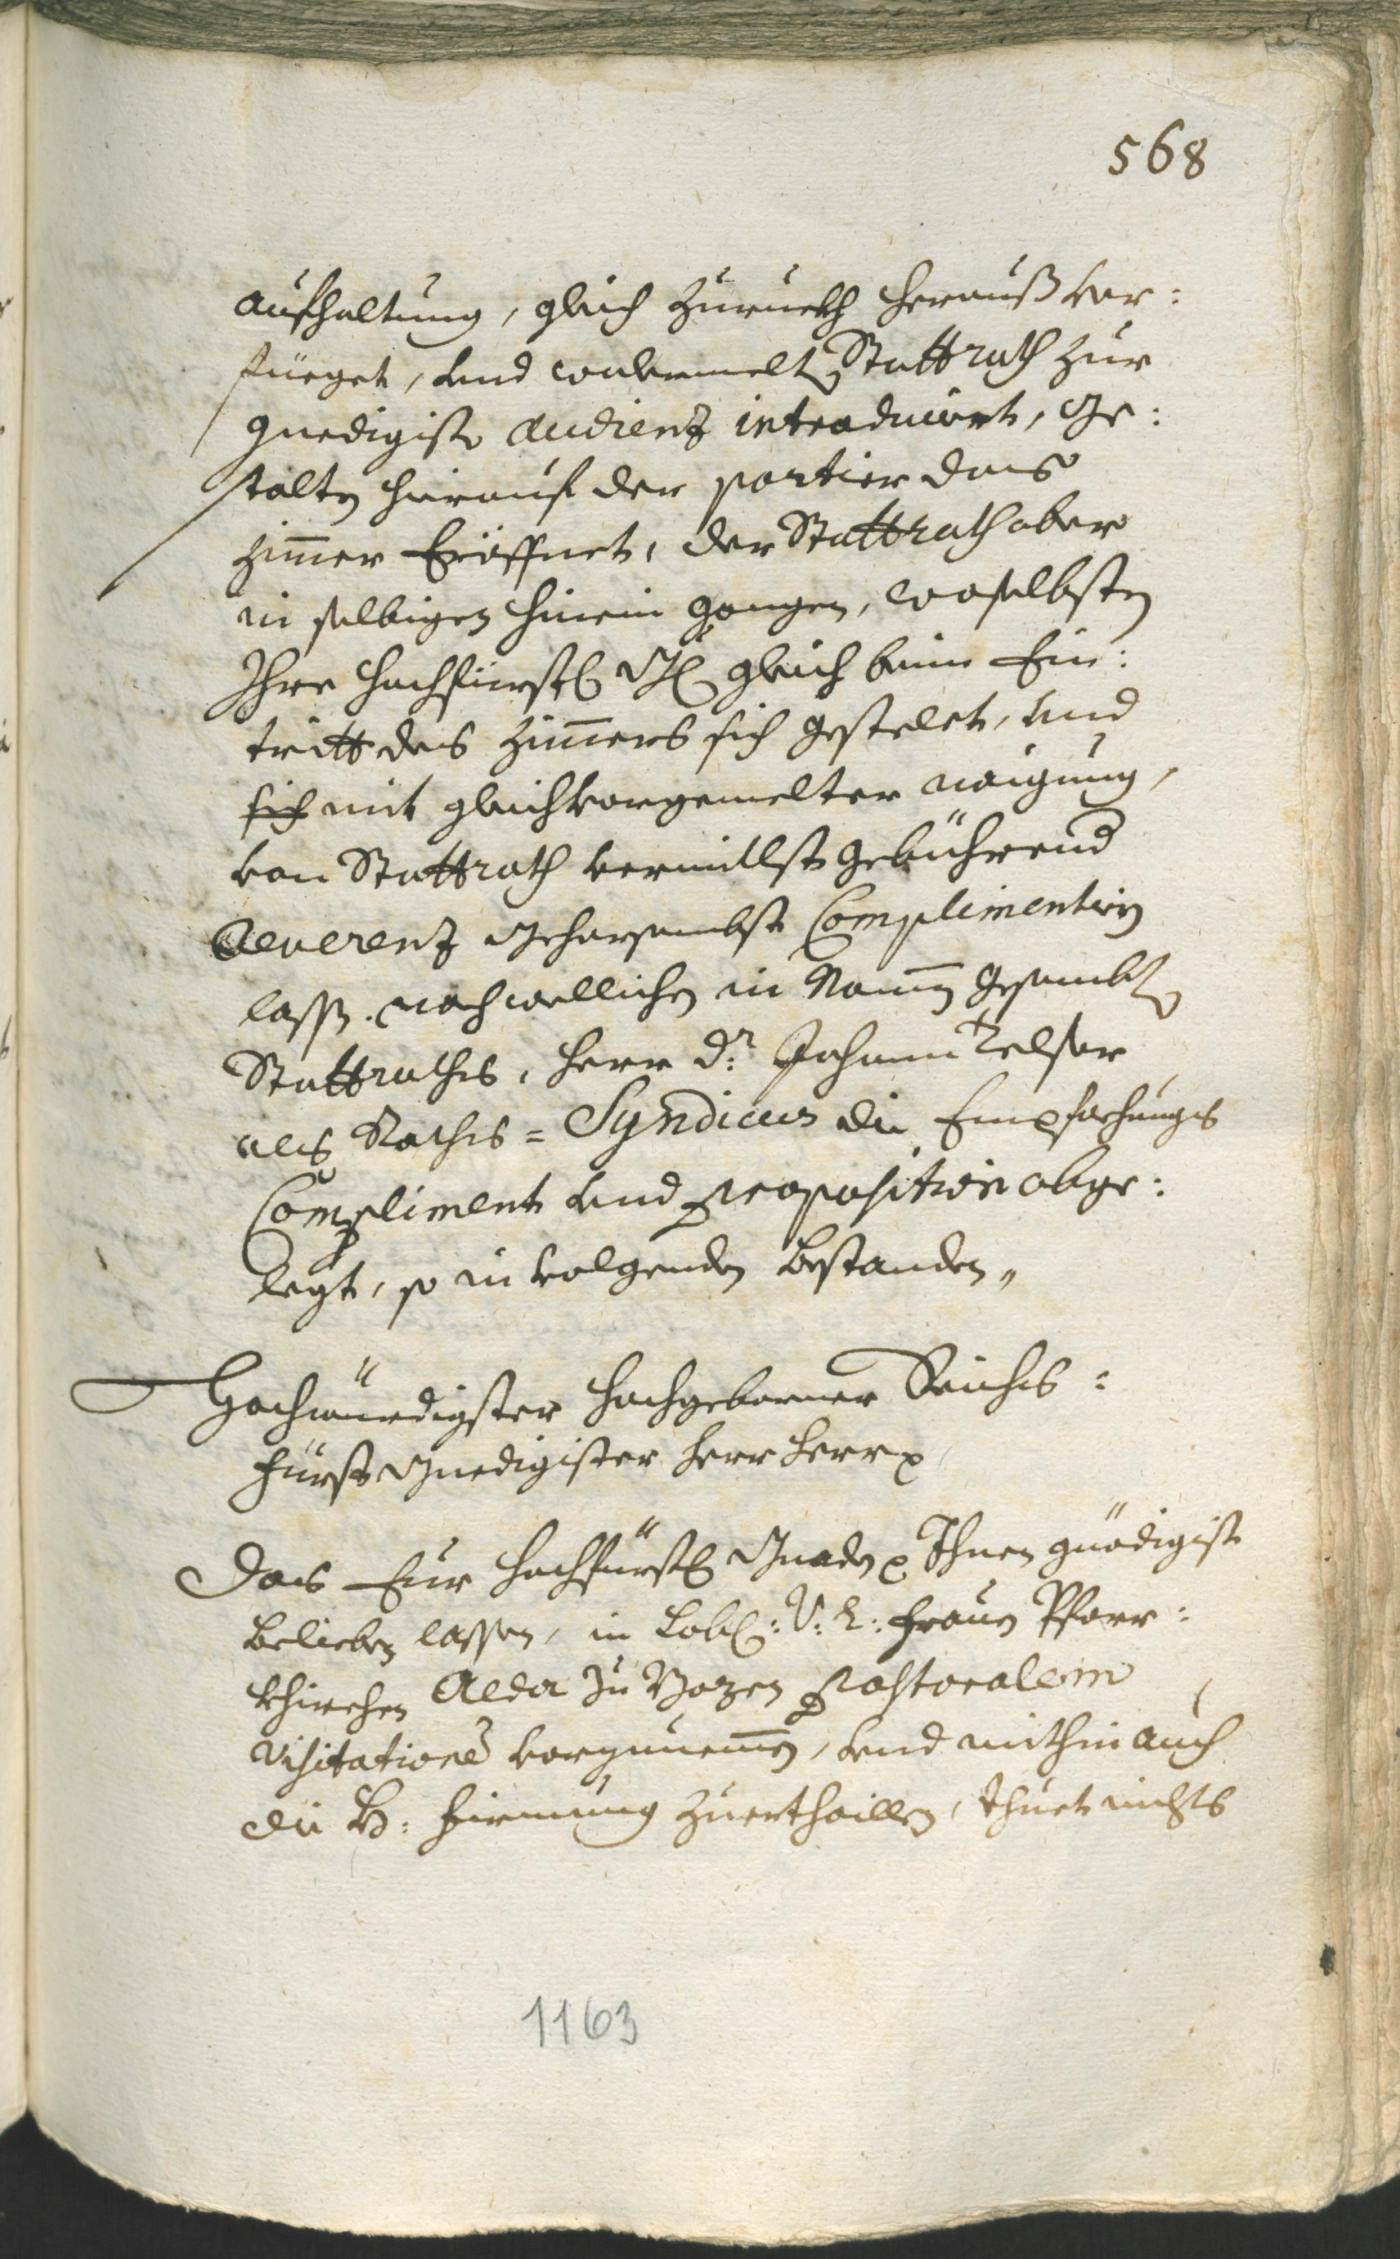 568
aufhaltung, gleich zuruckh herauß ver:
füeget, und wolvermelt Stattrath zur
gnedigiste Audienz introduciert, Ge:
stalten hierauf der portier das
Zimmer Eröffnet, der Stattrath aber
in selbigen hinein gangen, woselbsten
Ihre hochfürstl Gl gleich beim Ein:
tritt des Zimmers sich gestelet, und
sich mit gleichvorgemelter naigung,
von Stattrath vermitlst gebührend
Reverenz Gehorsambst Complimentirn
lassen. nach wellichen in Namen gesambten
Stattraths, herr Dr. Johann Zelser
als Raths= Syndicus die Empfachungs
Compliment und Proposition abge:
legt, so in volgenden bestanden„
Hochwürdigster hochgeborner Reichs:
fürst Gnedigister herr herr
Das Eur hochfürstl Gnaden Ihnen gnädigist
belieben lassen, in Lobl: U: L: Frauen Pfarr:
khirchen Alda zu Bozen Pastoralem
Visitationem vorzunemmen, und mithin auch
die H: firmung zuerthaillen, thuet nichts
1163